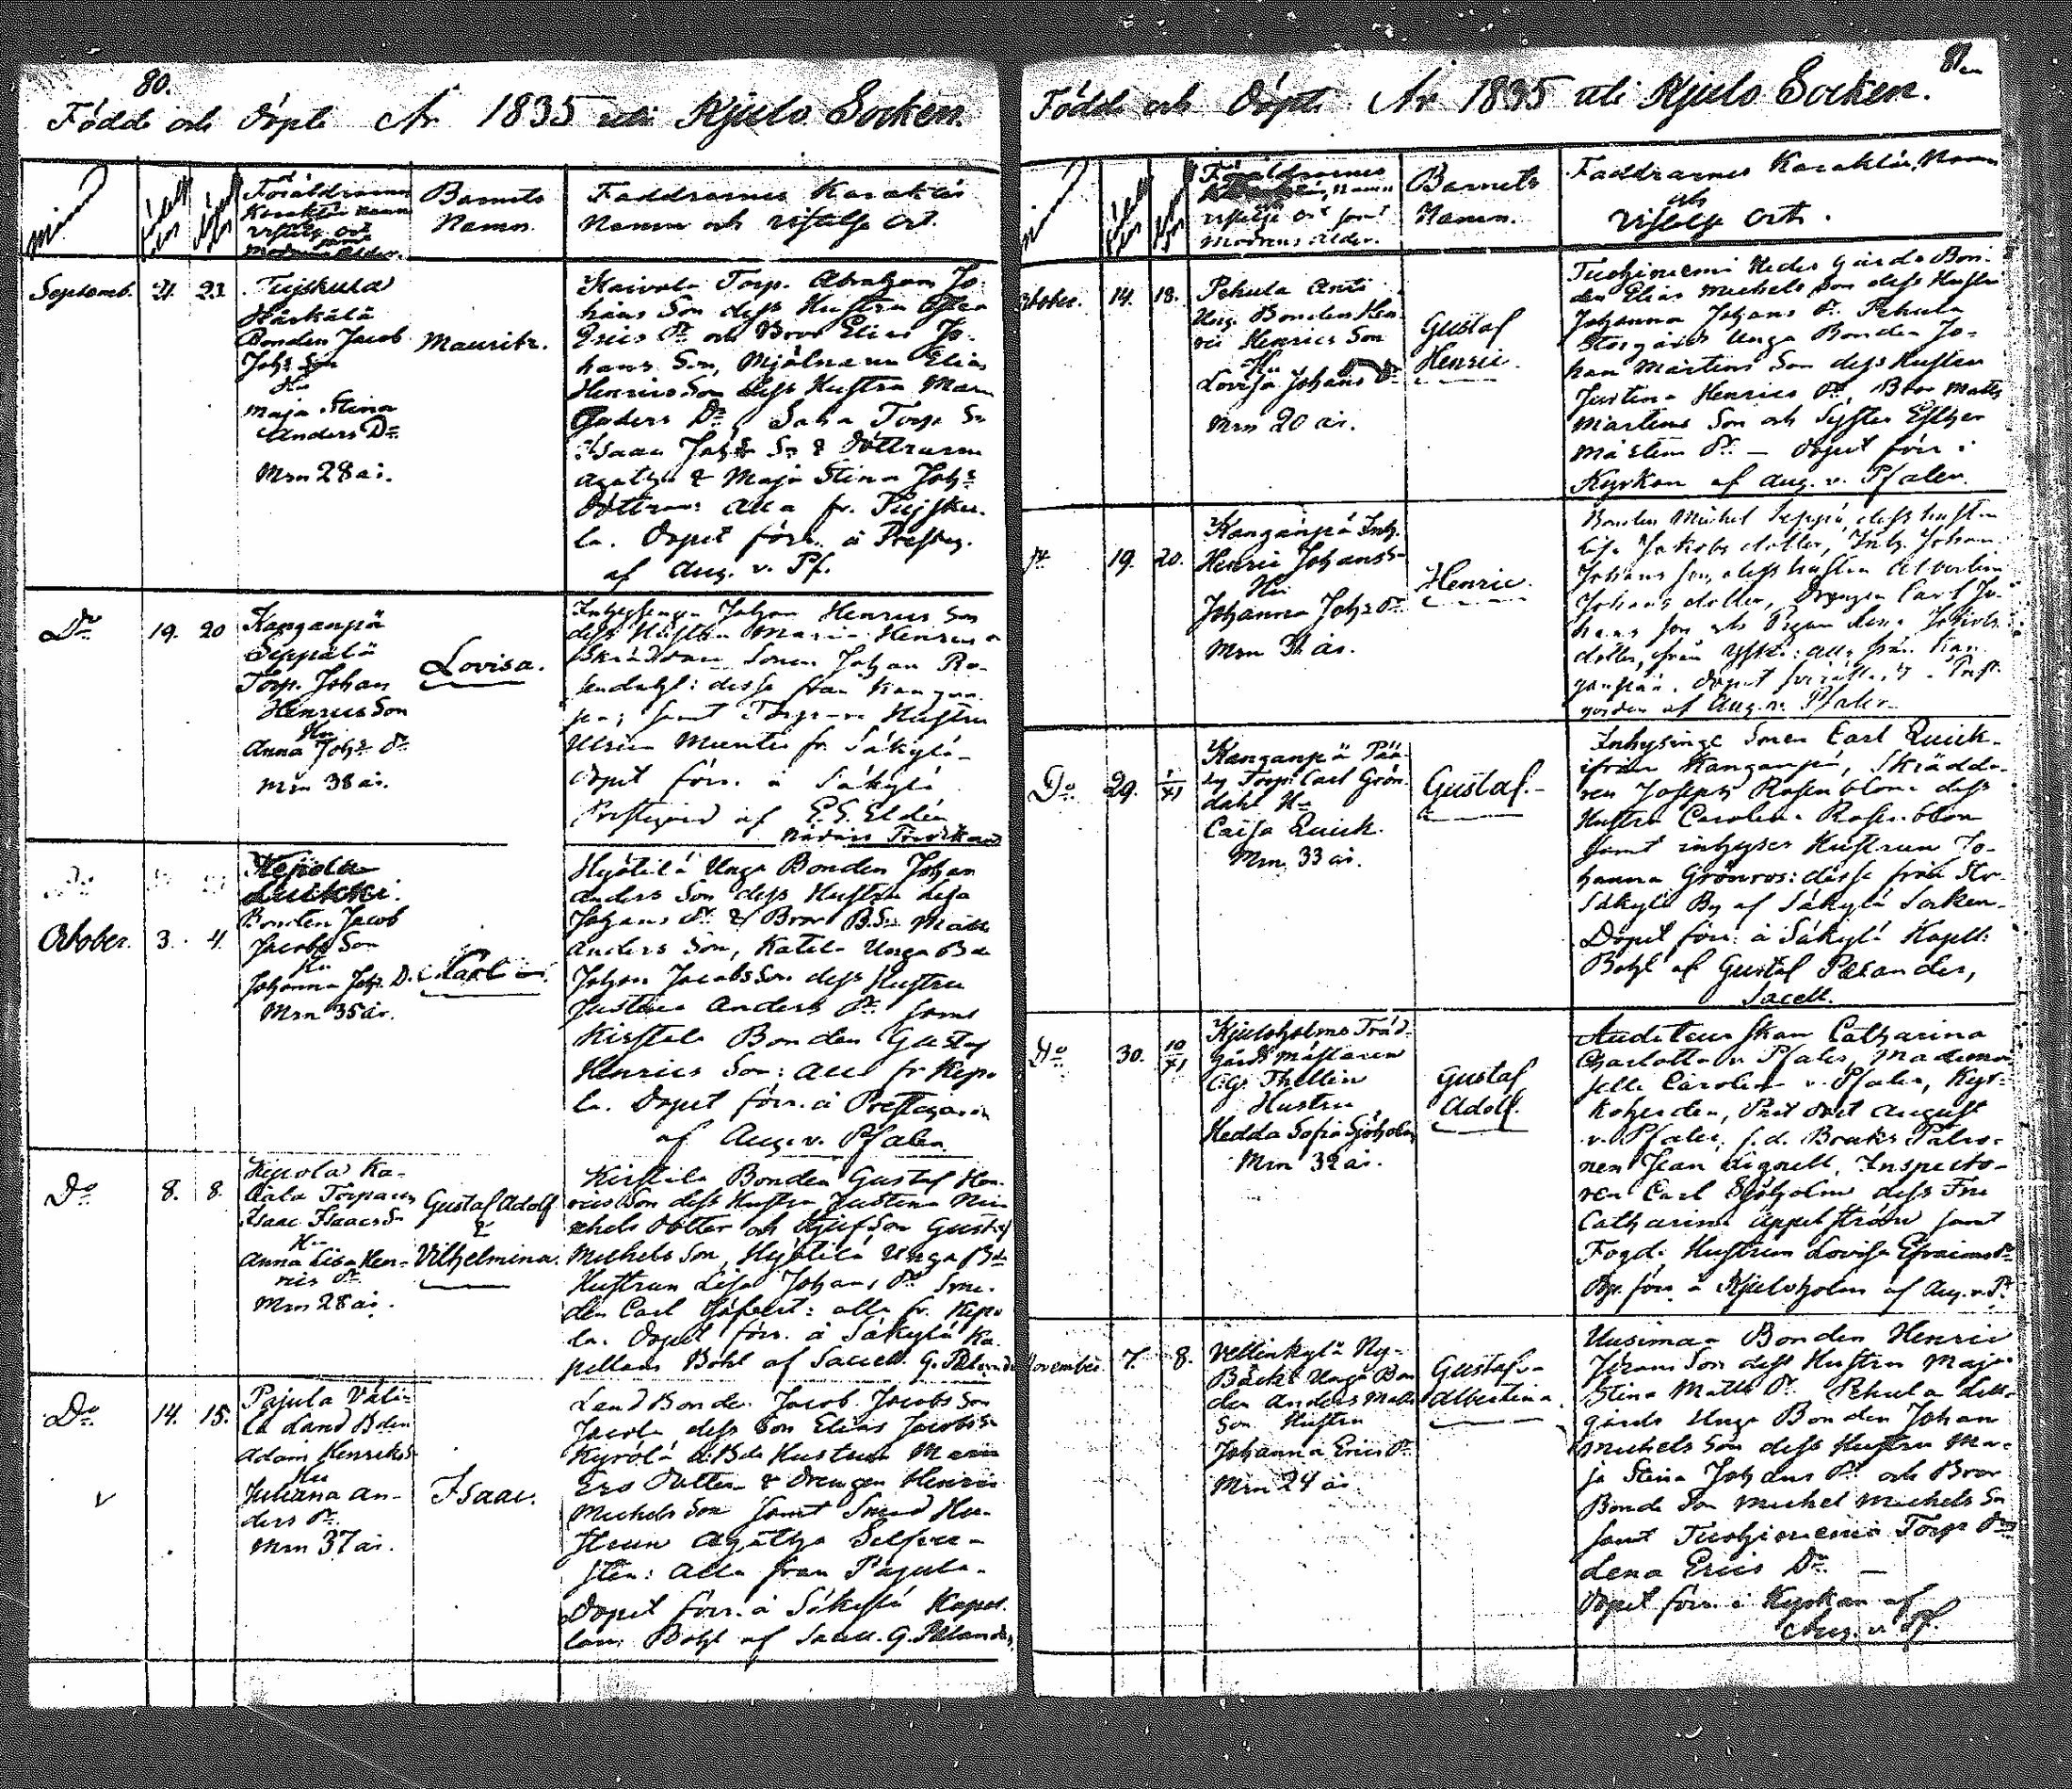 80.
Födde och döpte År 1835 uti Kjulo Socken.
Föräldrarnes
Karaktär namn
vistelse ort
samt
modrens ålder.
Barnets
Namn.
Faddrarnes Karaktär
Namn och vistelse ort.
Septemb. 21. 23.
Tujskula
Härkälä
Bonden Jacob
Johs Son
Hu
Maja Stina
Anders Dr
Mrn 28 år.
Mauritz.
Kaivola Torp. Abraham Jo-
hans Son dess Hustru
Erics Dr och Bror Elias Jo-
hans Son, Mjölnaren Elias
Henrics Son dess Hustru
Anders Dr, Torp. Sn
Isaac Johs Sn & Döttrarne
Agatha & Maja Stina Johs
Döttrar: alla fr. Tujsku-
la. Döpet förr. å Prestg.
af Aug. v. Pf.
Do 19. 20
Kanganpä
Seppälä
Torp. Johan
Henrics Son
Hu
Anna Johs Dr
Mrn 38 år.
Lovisa.
Inhysingen Johan Henrics Son
dess Hustru Maria Henrics
Skräddare Sonen Johan Ro-
sendahl: desse från Kangan-
pä; samt Hustru
Ulrica Munter fr. Säkylä
Döpet förr. å Säkylä
Prestgård af E. G. Eldén
Kepola
Luikki.
Bonden Jacob
Jacobs Son
Hu
Johanna Johs D.
Mrn 35 år.
October. 3. 4.
Carl
Hyötilä Unga Bonden Johan
Anders Son dess Hustru Lisa
Johans Dr & Bror B.Sn Matts
Anders Son, Katila Unga Bn
Johan Jacobs Son dess Hustru
Justina Anders Dr samt
Kirstilä Bonden Gustaf
Henrics Son: alla fr Kepo-
la. Döpet förr. å Prestgården
af Aug. v. Pfaler.
Do 8. 8.
Kepola Ka-
Torparen
Isaac Isaacs Sn
Hu
Anna Lisa Hen-
rics Dr
Mrn 28 år.
Gustaf Adolf
&
Vilhelmina.
Kirstilä Bonden Gustaf Hen-
rics Son dess Hustru Justina Mi-
chels Dotter och Styf Son Gustaf
Michels Son, Hyötilä Unga Bds
Hustrun Lisa Johans Dr Sme-
den Carl : alla fr. Kepo-
la. Döpet förr. å Säkylä Ka-
pellans Bohl af Sacell. G. Palander
Do 14. 15.
Pajula Väli-
lä Land Bden
Adam Henriks
Hu
Juliana An-
ders Dr
Mrn 37 år.
Isaac.
Land Bonden Jacob Jacobs Son
Jacola dess Son Elias Jacobs Sn
Kyrölä Hustrun Maria
Ers Dotter & Drengen Henric
Michels Son samt Smed Hu-
strun Agatha
: alla från Pajula.
Döpet förr. å Säkylä Kapel-
lans Bohl af Sacell. G. Palander.
81.
Födde och Döpte År 1835 uti Kjulo Socken.
Föräldrarnes
namn
vistelse Ort samt
Modrens ålder.
Barnets
Namn.
Faddrarnes Karaktär, Namn
och
vistelse ort.
October. 14. 18.
Pehula Anti
Ung Bonden Hen-
ric Henrics Son
Hu
Lovisa Johans Dr
Mrn 20 år.
Gustaf
Henric.
Tuohiniemi Neder Gårds Bon-
den Elias Michels Son dess Hustru
Johanna Johans Dr. Pehula
Storgårds Unga Bonden Jo-
han Mårtens Son dess Hustru
Justina Henrics Dr, Bror Matts
Mårtens Son och Syster Esther
Mårtens Dr — Döpet förr. i
Kyrkan af Aug. v. Pfaler.
19. 20.
Kanganpä Inh.
Henric Johans Sn
Hu
Johanna Johs Dr
Mrn 31 år.
Henric.
Bonden Michel Seppä, dess hustru
Lisa Jakobs dotter, Inh. Johan
Johans son, dess hustru Albertina
Johans dotter, Drängen Carl Jo-
hans son och Pigan Lena Jakobs
dotter, alla från Kan-
ganpää. Döpet förrättadt i Prest-
gården af Aug. v. Pfaler.
Do 29. 1/XI
Kanganpä Pää-
by Torp. Carl Grön-
dahl Hu
Caisa Quick.
Mrn 33 år.
Gustaf.
Inhysinge Sonen Carl Quick
ifrån Kanganpä, Skrädda-
ren Joseph Rosenblom dess
Hustru Carolina Rosenblom
samt inhyses Hustrun Jo-
hanna Grönros: desse från Stor
Säkylä By af Säkylä Socken.
Döpet förr: å Säkylä Kapell:
Bohl af Gustaf Palander,
Sacell.
Do 30. 10/XI
Kjuloholms Träd-
gårds Mästaren
C. G. Thellin
Hustru
Hedda Sofia Sjöholm
Mrn 32 år.
Gustaf
Adolf.
Auditeurskan Catharina
Charlotta v. Pfaler, Mademoi-
selle Carolina v. Pfaler, Kyr-
koherden, August
v. Pfaler, f.d. Bruks Patro-
nen Jean Lignell, Inspecto-
ren Carl Sjöholm dess Fru
Catharina Appelström samt
Fogde Hustrun Lovisa Efraims Dr
Döp. förr. å Kjuloholm af Aug. v. Pf.
November. 7. 8.
Vellinkylä Ny-
Backa Unga Bon-
den Anders Matts
Son Hustru
Johanna Erics Dr
Mrn 24 år
Gustafva
Albertina.
Uusimaa Bonden Henric
Johans Son dess Hustru Maja
Stina Matts Dr. Pehula Lill-
gårds Unga Bonden Johan
Michels Son dess Hustru Ma-
ja Stina Johans Dr och Bror
Bonde Son Michel Michels Sn
samt Tuohiniemi Torp. Dr
Lena Erics Dr —
Döpet förr. i Kyrkan af
Aug. v. Pf.